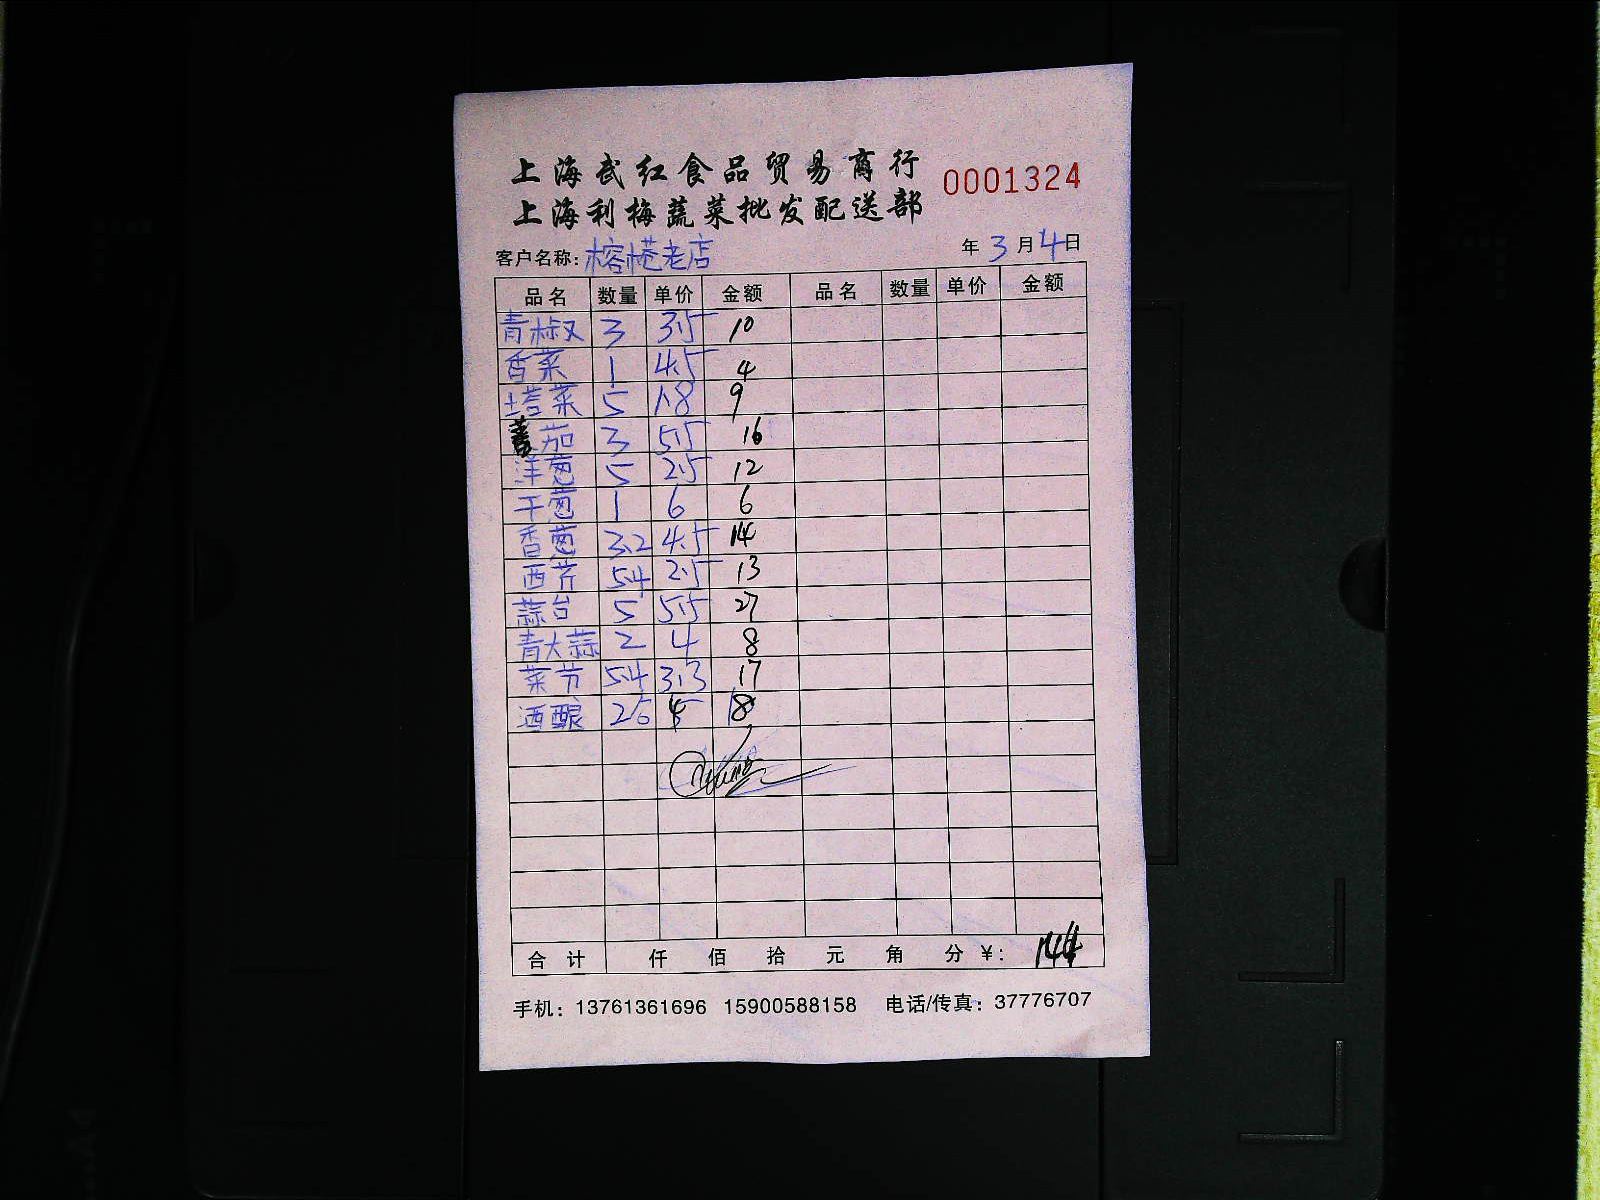 上海武红食品贸易商行
0001324
上海利梅蔬菜批发配送部
客户名称: 榕港老店 年 3 月 4 日
品名 数量 单价 金额 品名 数量 单价 金额
青椒 3 3.5 10
香菜 1 4.5 4
塔菜 5 1.8 9
蕃茄 3 5.5 16
洋葱 5 2.5 12
干葱 1 6 6
香葱 3.2 4.5 14
西芹 5.4 2.5 13
蒜台 5 5.5 27
青大蒜 2 4 8
菜节 5.4 3.3 17
酒酿 2 8
合计 仟 佰 拾 元 角 分 ¥: 144
手机: 13761361696 15900588158 电话/传真: 37776707